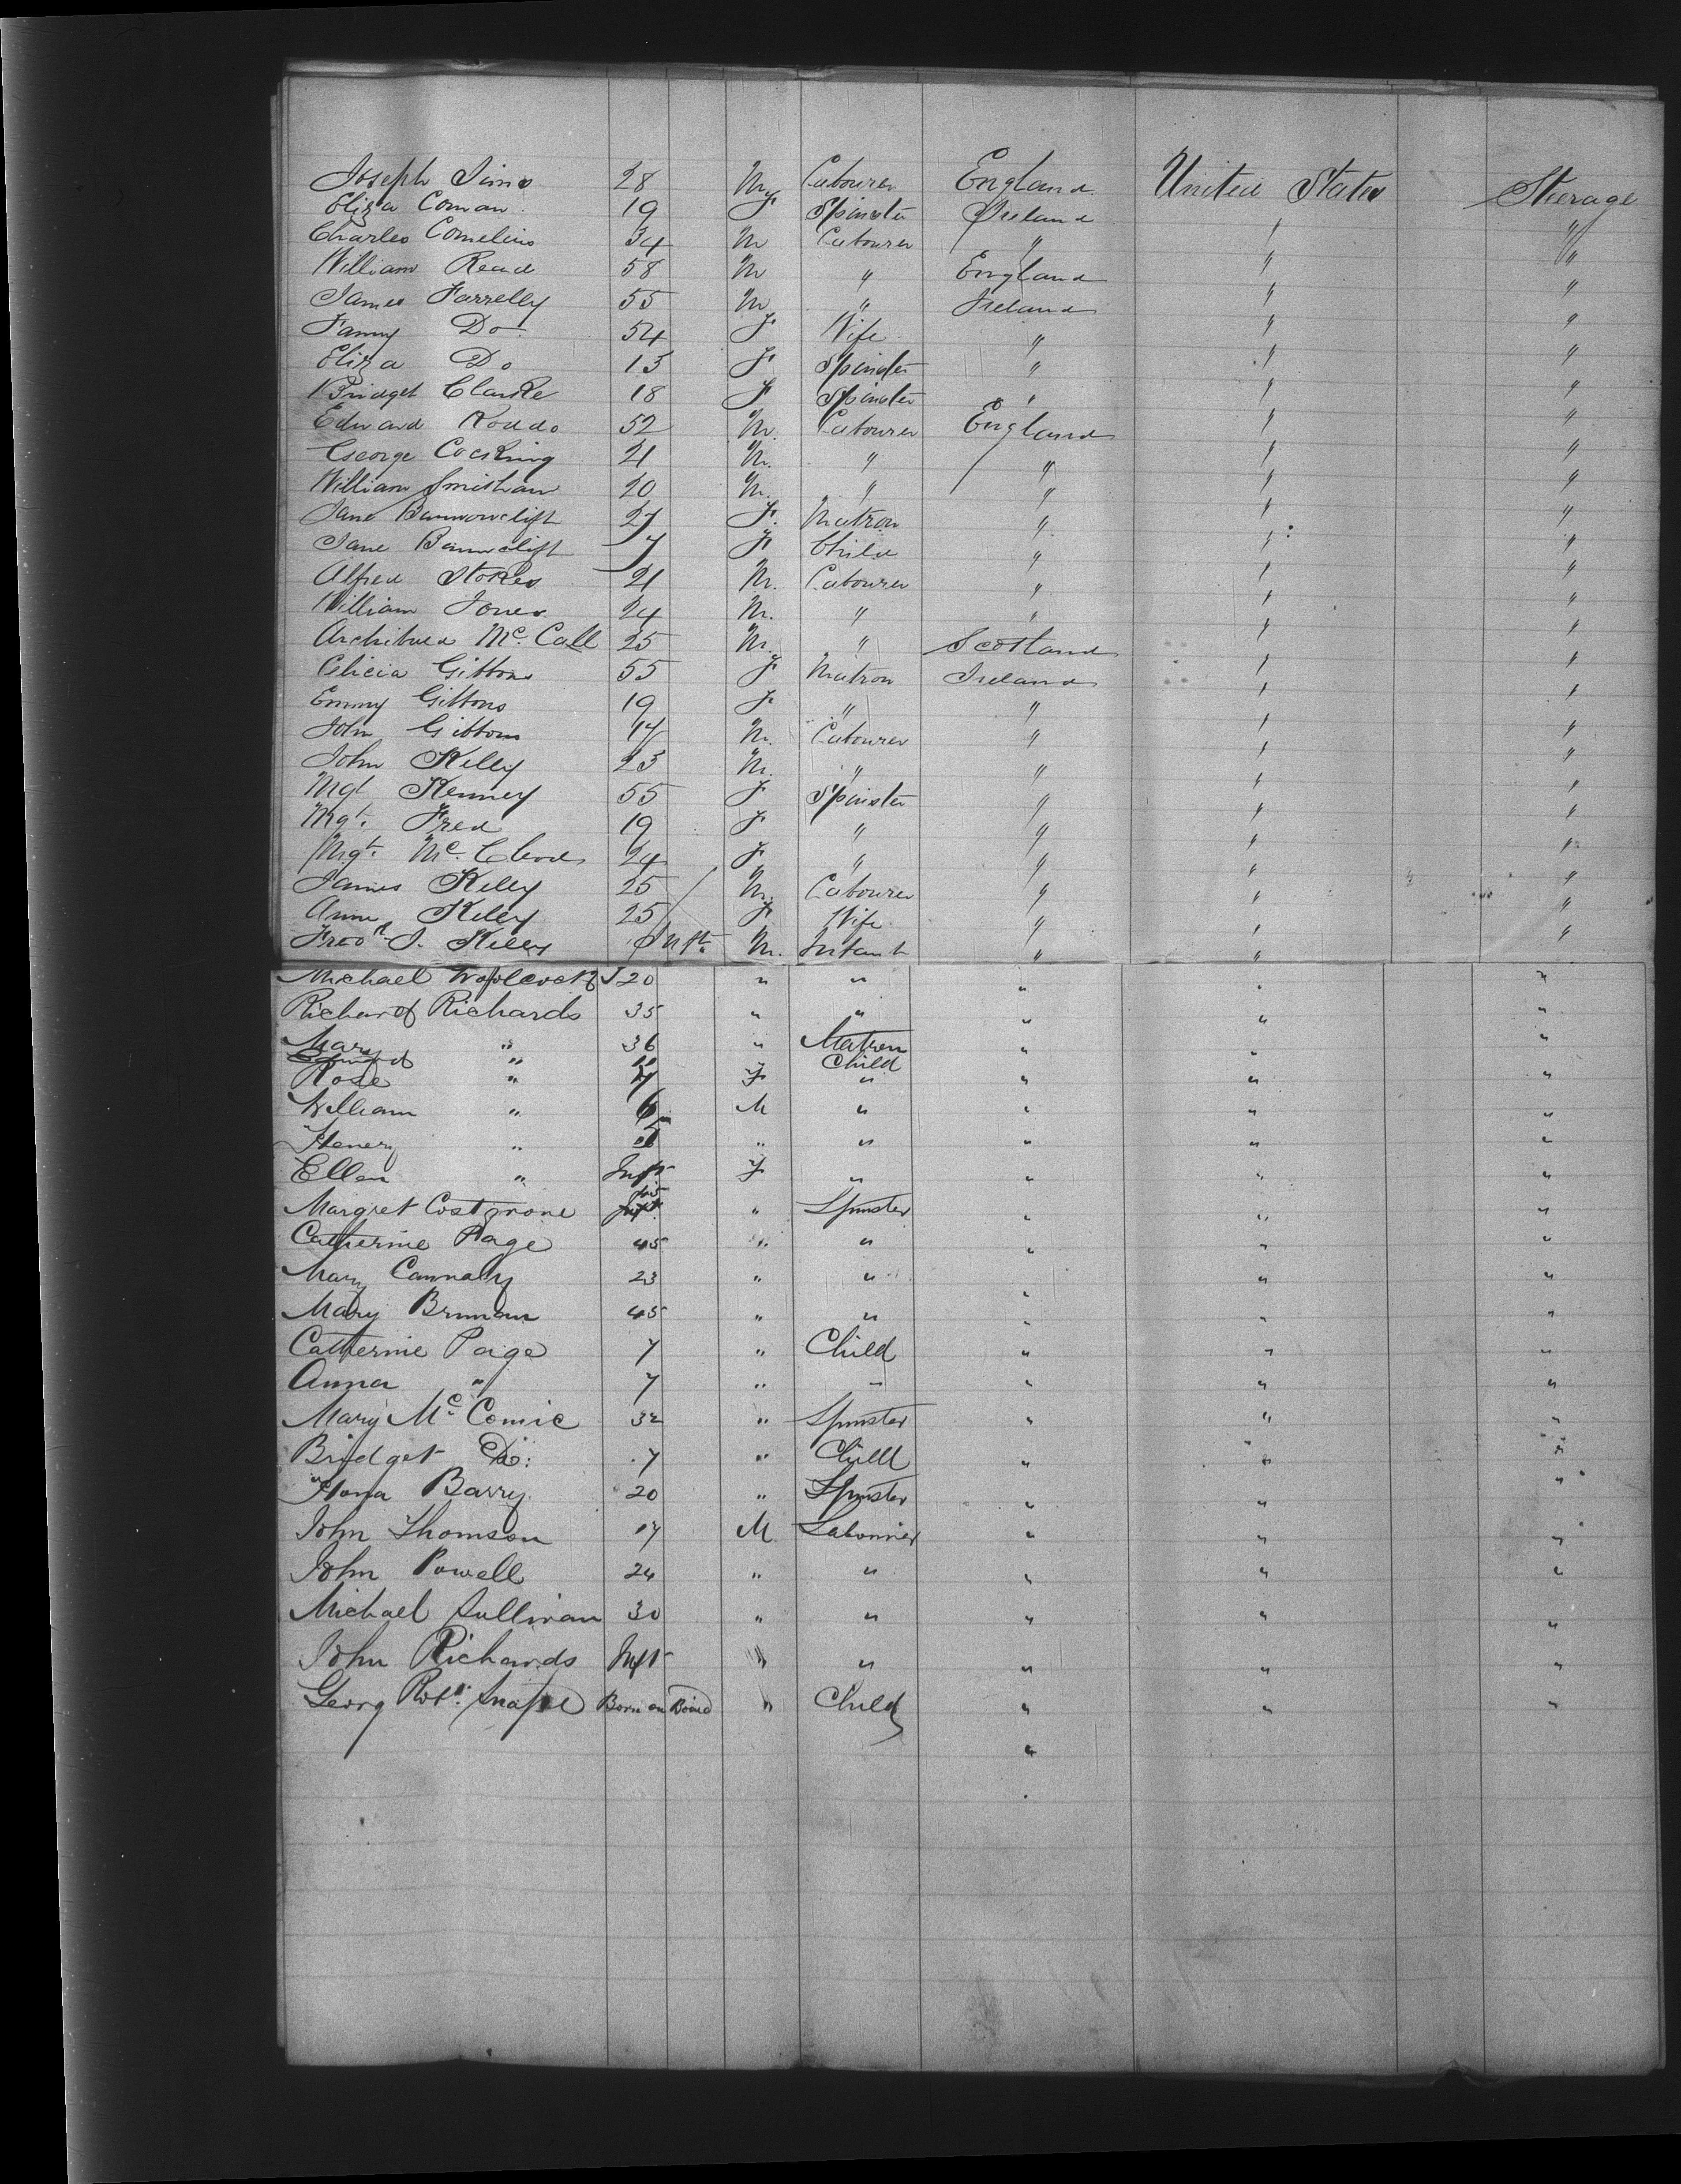 Joseph Sims 28 M Labourer England United States Steerage
Eliza Coman 19 F Spinster Ireland " "
Charles Cornelius 34 M Labourer " " "
William Read 58 M " England " "
James Farrelly 55 M " Ireland " "
Fanny Do 54 F Wife " " "
Eliza Do 13 F Spinster " " "
Bridget Clarke 18 F Spinster " " "
Edward 52 M. Labourer England " "
George Cocking 21 M. " " " "
William 20 M. " " " "
Jane 27 F. Matron " " "
Jane 7 F Child " " "
Alfred Stokes 21 M. Labourer " " "
William Jones 24 M. " " " "
Archibald Mc. Call 25 M. " Scotland " "
Gibbons 55 F Matron Ireland " "
Emmy Gibbons 19 F " " " "
John Gibbons 17 M. Labourer " " "
John Kelly 23 M. " " " "
Mgt Kenney 55 F Spinster " " "
Mgt. Fred 19 F " " " "
Mgt. Mc. 24 F " " " "
James Kelly 25 M. Labourer " " "
Anne Kelly 25 F Wife " " "
Fredk J. Kelly Inft. M. Infant " " "
Michael 20 " " " " "
Richard Richards 35 " " " " "
Mary " 36 " Matron " " "
" Child
Rose " F " " " "
William " 6 M " " " "
Henery " " " " " "
Ellen " Inft F " " " "
Margret 45 " Spinster " " "
Catherine Page 45 " " " " "
Mary Cannaly 23 " " " " "
Mary Brunan 45 " " " " "
Catherine Paige 7 " Child " " "
Anna " 7 " " " " "
Mary Mc Comic 32 " Spinster " " "
Bridget Do: 7 " Child " " "
Hona Barry 20 " Spinster " " "
John Thomson 17 M Labourier " " "
John Powell 24 " " " " "
Michael Sullivan 30 " " " " "
John Richards Inft " " " " "
Georg Robt. Snape Born on Board " Child " " "
"